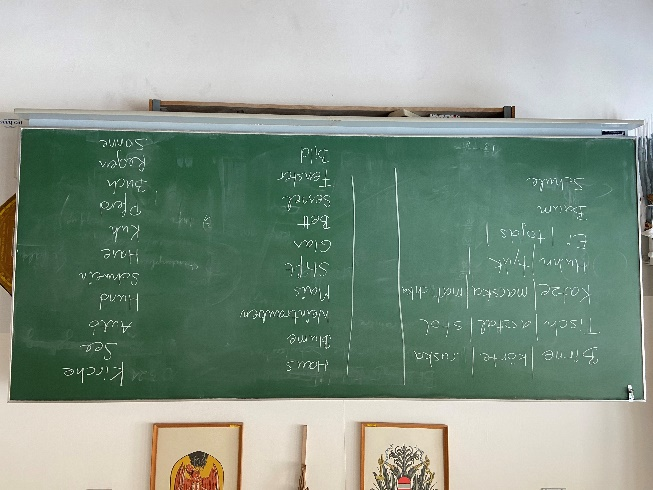 Birne | körte | ruska
Tisch | asztal | stol
Katze | macska |
Huhn | tyúk |
Ei | tojás |
Baum
Schule
Haus
Blume
Weintrauben
Maus
Stift
Glas
Bett
Sessel
Fenster
Bild
Kirche
See
Auto
Hund
Schwein
Hase
Kuh
Pferd
Buch
Regen
Sonne